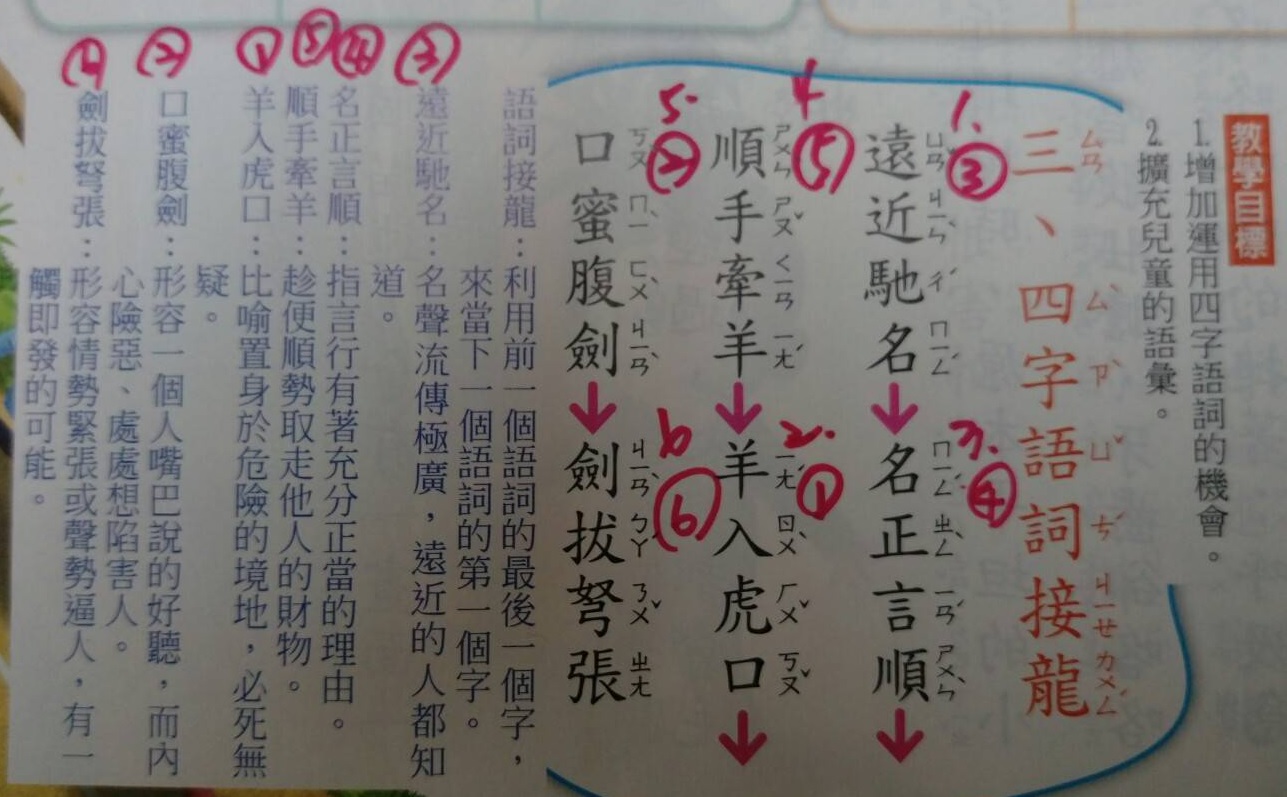 教學目標
1. 增加運用四字語詞的機會。
2. 擴充兒童的語彙。
三、四字語詞接龍
ㄙㄢ ㄙˋ ㄗˋ ㄩˇ ㄘˊ ㄐㄧㄝ ㄌㄨㄥˊ
1. ③
遠近馳名↓名正言順↓
ㄩㄢˇ ㄐㄧㄣˋ ㄔˊ ㄇㄧㄥˊ ㄇㄧㄥˊ ㄓㄥˋ ㄧㄢˊ ㄕㄨㄣˋ
3. ④
4 ⑤
順手牽羊↓羊入虎口↓
ㄕㄨㄣˋ ㄕㄡˇ ㄑㄧㄢ ㄧㄤˊ ㄧㄤˊ ㄖㄨˋ ㄏㄨˇ ㄎㄡˇ
2. ①
5. ②
口蜜腹劍↓劍拔弩張
ㄎㄡˇ ㄇㄧˋ ㄈㄨˋ ㄐㄧㄢˋ ㄐㄧㄢˋ ㄅㄚˊ ㄋㄨˇ ㄓㄤ
6 ⑥
語詞接龍：利用前一個語詞的最後一個字，
來當下一個語詞的第一個字。
③
遠近馳名：名聲流傳極廣，遠近的人都知
道。
④
名正言順：指言行有著充分正當的理由。
⑤
順手牽羊：趁便順勢取走他人的財物。
①
羊入虎口：比喻置身於危險的境地，必死無
疑。
②
口蜜腹劍：形容一個人嘴巴說的好聽，而內
心險惡、處處想陷害人。
劍拔弩張：形容情勢緊張或聲勢逼人，有一
觸即發的可能。